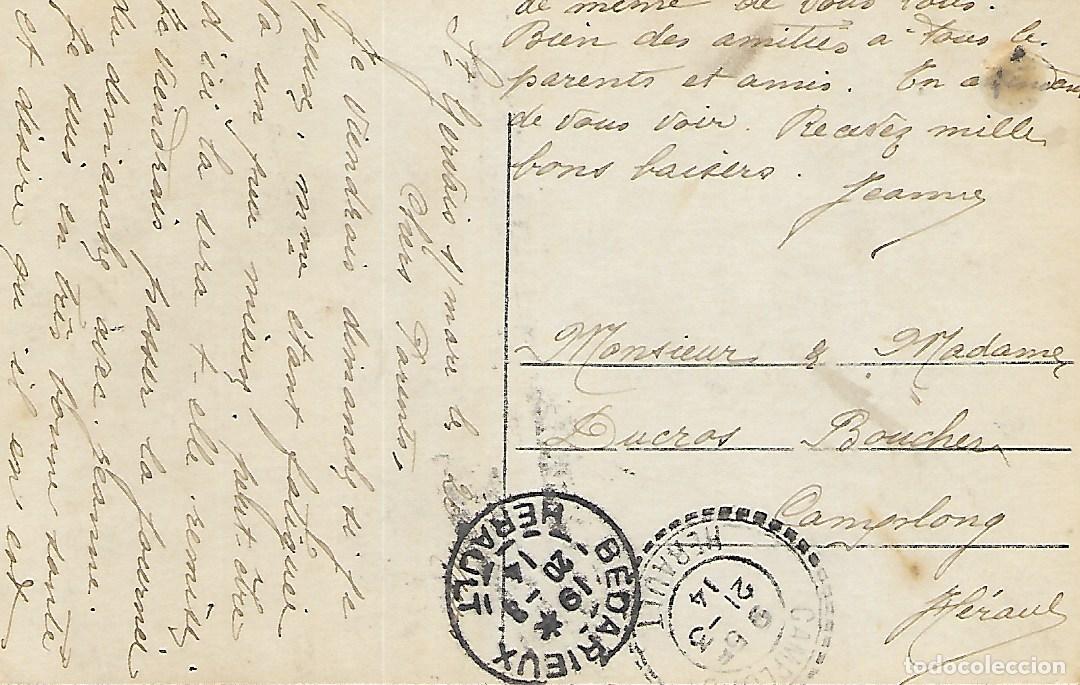 Chers Parents,
Je viendrais dimanche si je
peux, mme étant fatiguée
un peu mieux, peut-être
d'ici la sera-t-elle remise.
Je viendrais passer la journée
du dimanche avec Jeanne.
Je suis en très bonne santé
et désire qu'il en soit
de même de vous tous.
Bien des amitiés à tous le
parents et amis. En attendant
de vous voir. Recevez mille
bons baisers.
Jeanne
Monsieur & Madame
Ducros Boucher
Camplong
Hérault
BEDARIEUX
HERAULT
19
20-3
14
HERAULT
21-3
14
todocoleccion